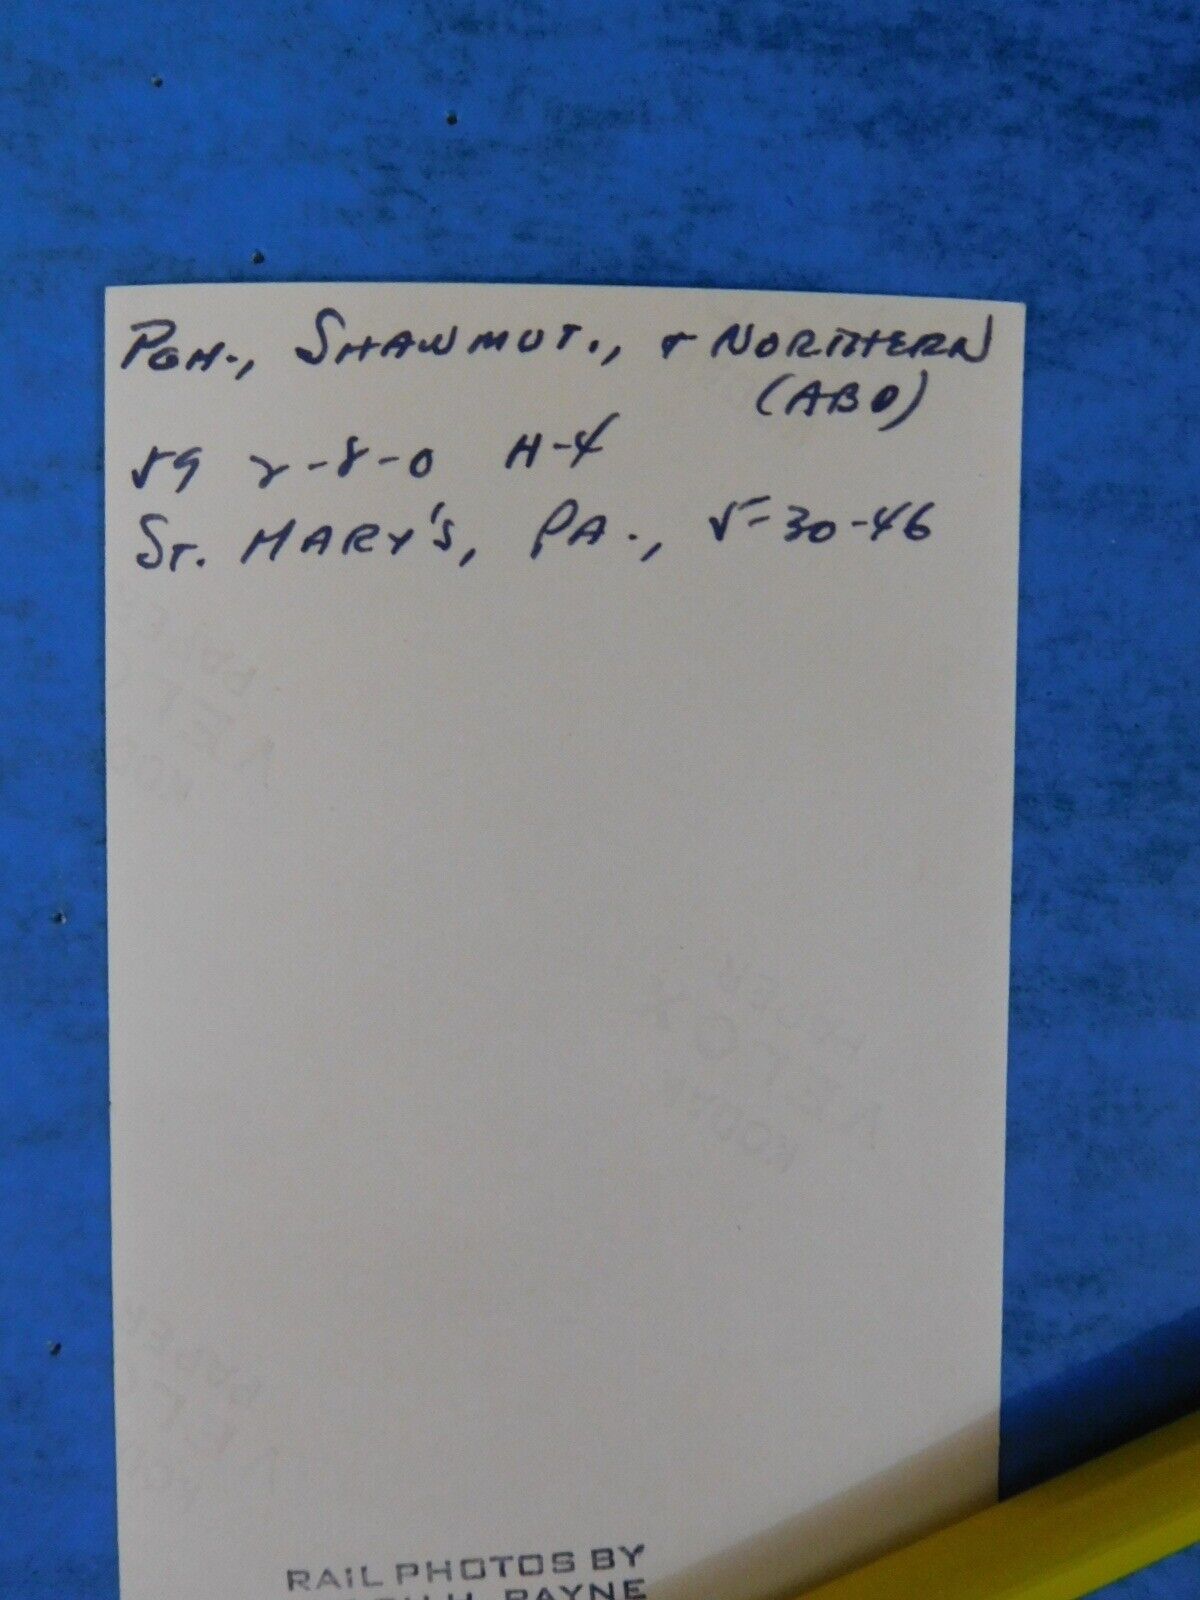 PGH., SHAWMUT., + NORTHERN
(ABD)
59 2-8-0 H-4
ST. MARY'S, PA., 5-30-46
KODAK
VELOX
PAPER
RAIL PHOTOS BY
H. PAYNE